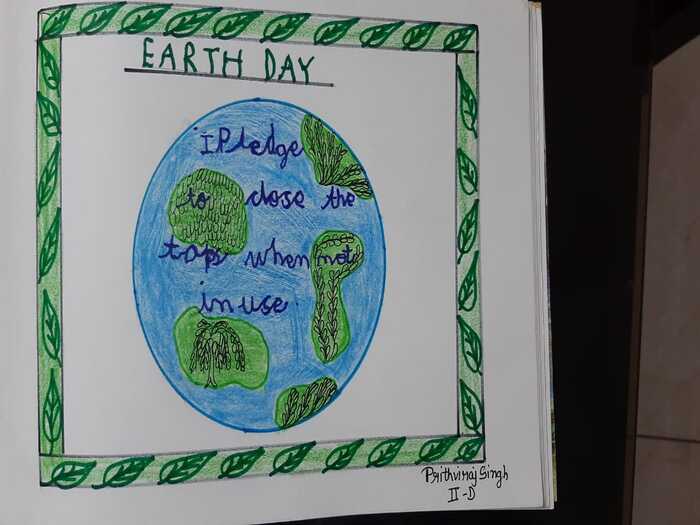 EARTH DAY
I Pledge
to close the
taps when not
in use.
Prithviraj Singh
II-D